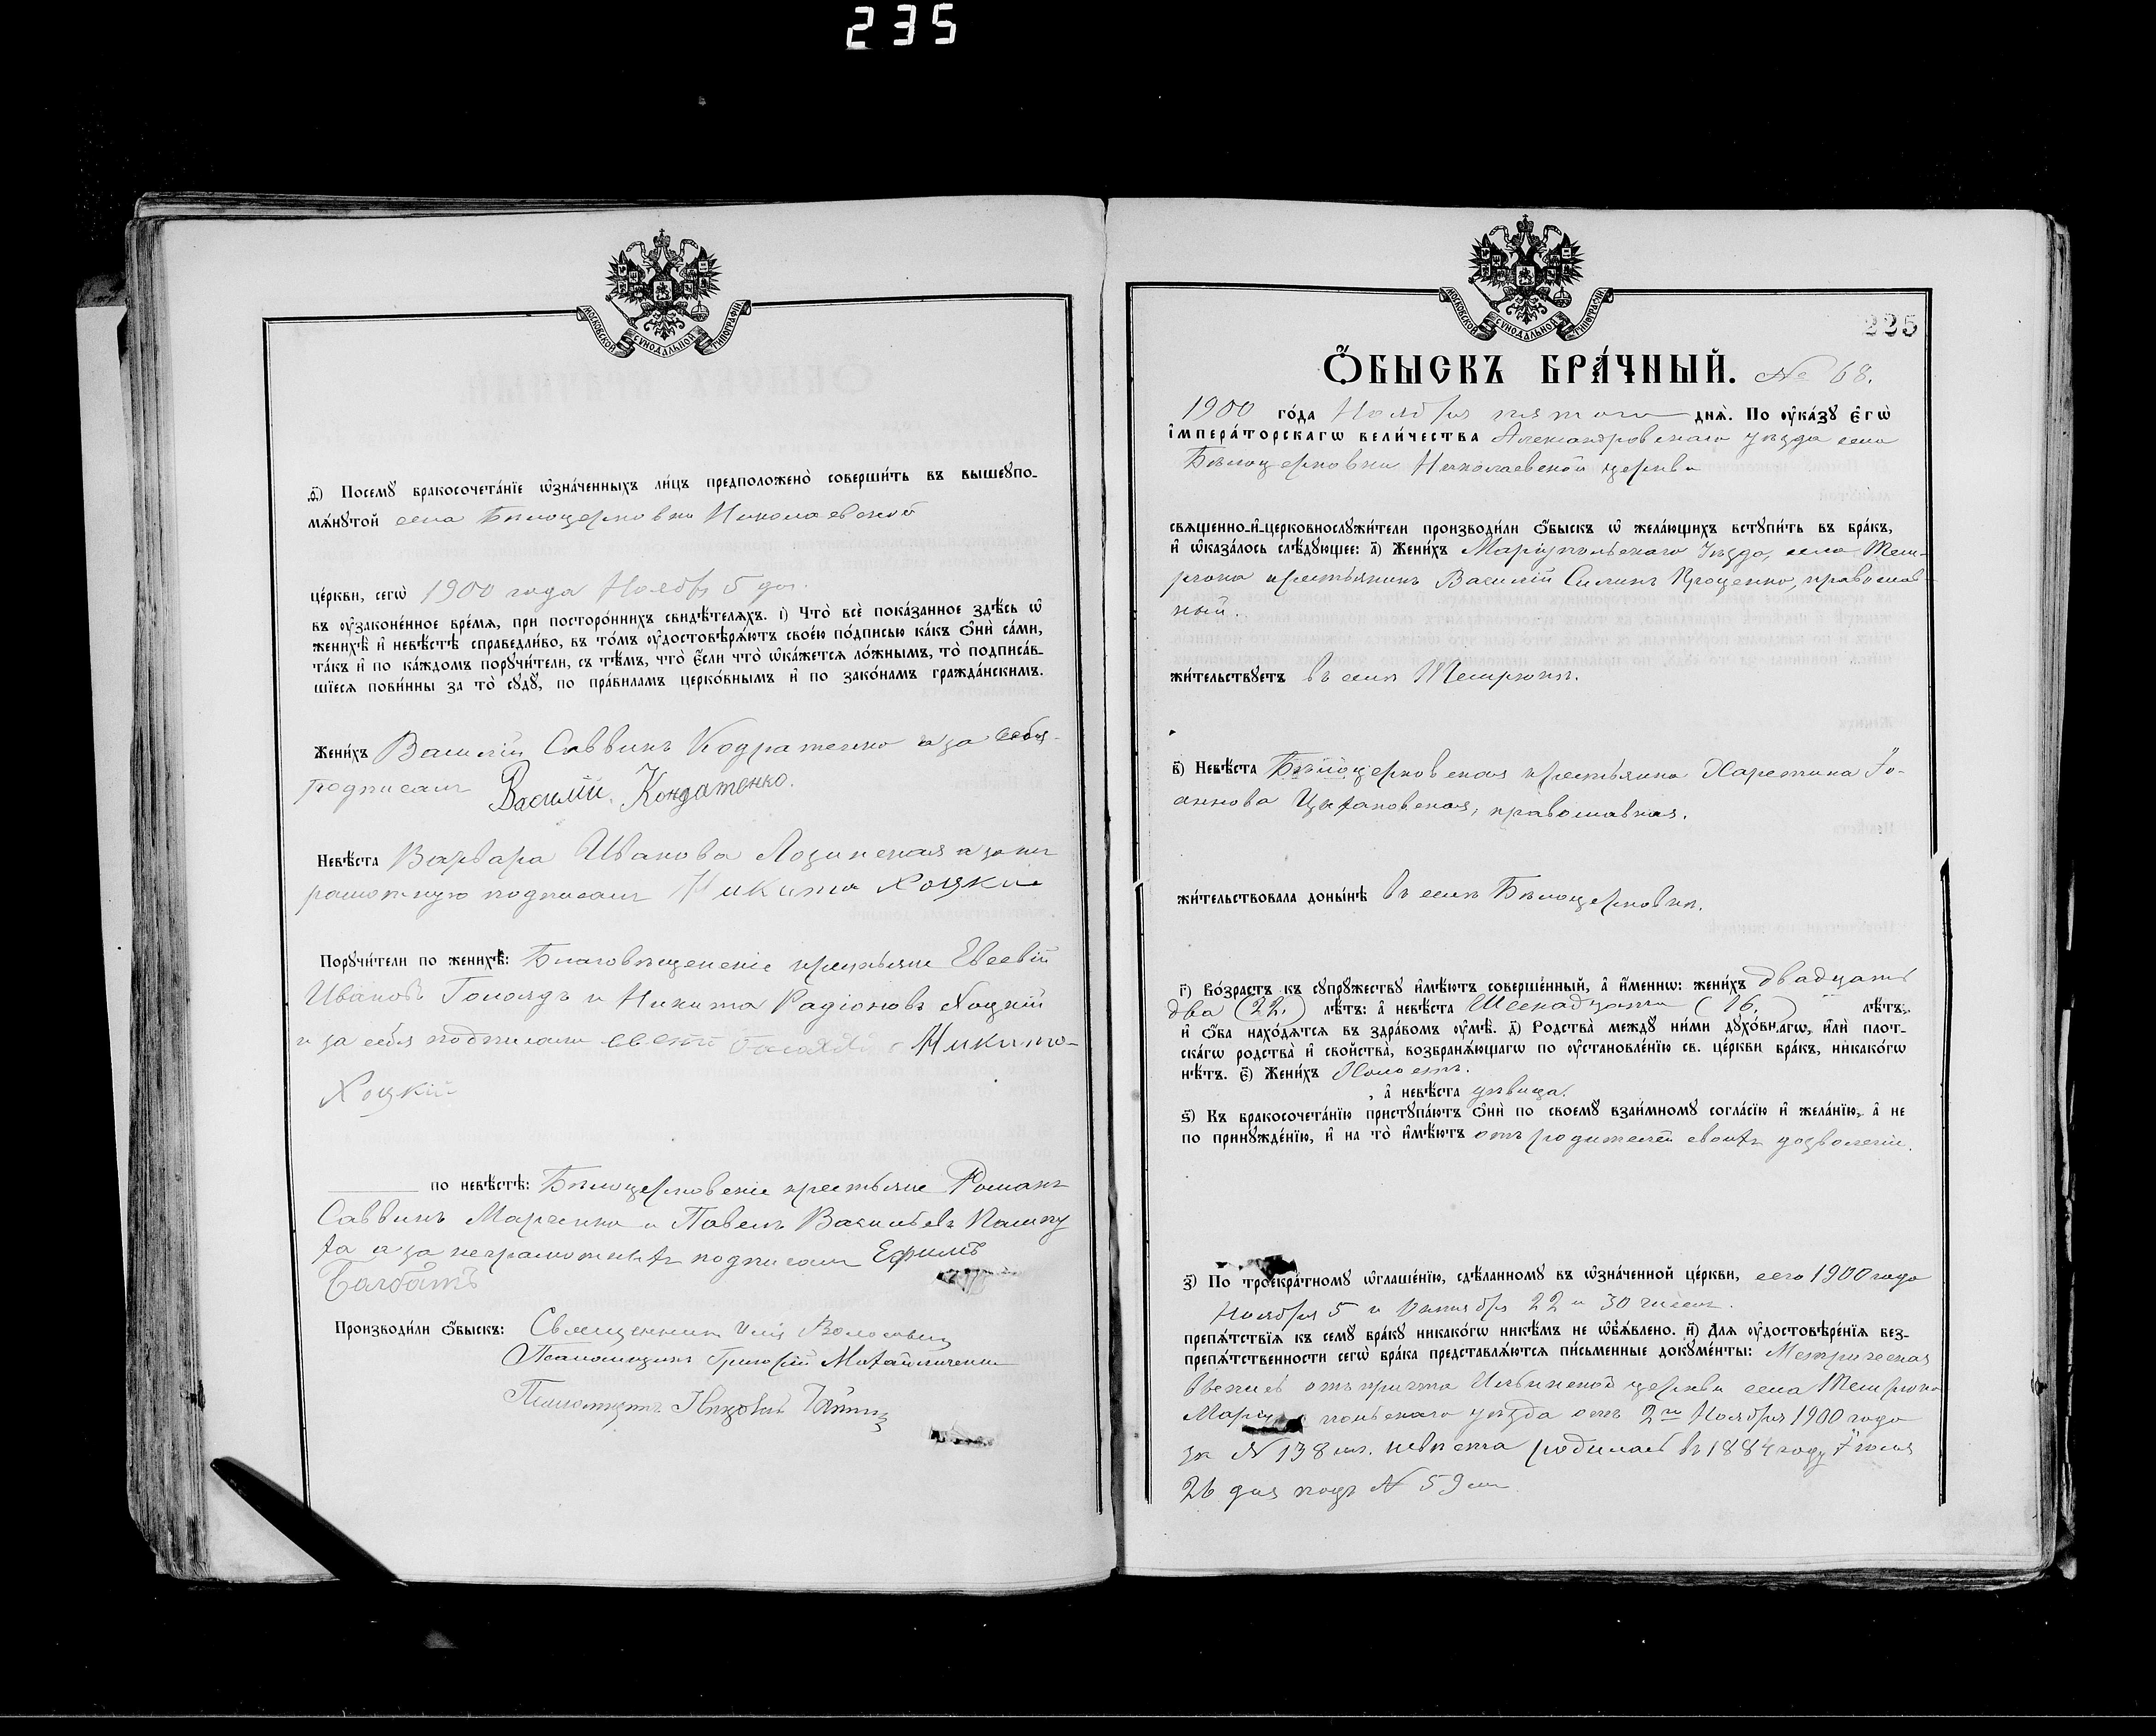 235
МОСКОВСКОЙ СѴНОДАЛЬНОЙ ТИПОГРАФІИ
ѳ҃) Посемꙋ бракосочета́нїе ѡ҆зна́ченныхъ ли́цъ предположено̀ соверши́ть въ вышеꙋпо-
мѧ́нꙋтой села Бѣлоцерковки Николаевской
це́ркви, сегѡ̀ 1900 года Ноября 5 дня.
въ ᲂу҆зако́ненное вре́мѧ, при посторо́ннихъ свидѣ́телѧхъ. і҃) Что̀ всѐ пока́занное здѣ́сь ѡ҆
женихѣ̀ и҆ невѣ́стѣ справедли́во, въ то́мъ ᲂу҆достовѣрѧ́ютъ свое́ю по́дписью ка́къ ѻ҆нѝ са́ми,
та́къ и҆ по ка́ждомъ порꙋчи́тели, съ тѣ́мъ, что̀ є҆́сли что̀ ѡ҆ка́жетсѧ ло́жнымъ, то̀ подписа́в-
шїесѧ пови́нны за то̀ сꙋдꙋ̀, по пра́виламъ церко́внымъ и҆ по зако́намъ гражда́нскимъ.
Жени́хъ Василій Саввинъ Кодратенко а за себя
подписалъ Василій Кондатенко.
Невѣ́ста Варвара Иванова Лозинская а за нег
рамотную подписалъ Никита Хоцкій
Порꙋчи́тели по женихѣ̀: Благовѣщенскіе крестьяне Евсевій
Ивановъ Голоядъ и Никита Радіоновъ Хоцкій
и за себя подписали Никита
Хоцкій
по невѣ́стѣ: Бѣлоцерковскіе крестьяне Романъ
Саввинъ Марченко и Павелъ Васильевъ
а за неграмотныхъ подписалъ Ефимъ
Балбатъ
Производи́ли ѻ҆́быскъ: Священникъ Илія Волосовц
Псаломщикъ Григорій Михайличенко
Псаломщикъ
МОСКОВСКОЙ СѴНОДАЛЬНОЙ ТИПОГРАФІИ
225
Ѻ҆́БЫСКЪ БРА́ЧНЫЙ. № 68.
1900 го́да Ноября пятого днѧ̀. По ᲂу҆ка́зꙋ є҆гѡ̀
і҆мпера́торскагѡ вели́чества Александровскаго уѣзда села
Бѣлоцерковки Николаевской церкви
свѧще́нно-и҆-церковнослꙋжи́тели производи́ли ѻ҆́быскъ ѡ҆ жела́ющихъ встꙋпи́ть въ бра́къ,
и҆ ѡ҆каза́лось слѣ́дꙋющее: а҃) Жени́хъ Маріупольскаго Уѣзда, села Тем-
рюка крестьянинъ Василій Силинъ Проценко, православ-
ный.
жи́тельствꙋетъ въ селѣ Темрюкѣ.
в҃) Невѣ́ста Бѣлоцерковская крестьянка Харетина Іо-
аннова Цехановская, православная.
жи́тельствовала доны́нѣ въ селѣ Бѣлоцерковкѣ.
г҃) Во́зрастъ къ сꙋпрꙋ́жествꙋ и҆мѣ́ютъ соверше́нный, а҆ и҆́менно: жени́хъ двадцать
два (22.) лѣ́тъ: а҆ невѣ́ста Шеснадцати (16.) лѣ́тъ;
и҆ ѻ҆́ба нахо́дѧтсѧ въ здра́вомъ ᲂу҆мѣ̀. д҃) Родства̀ междꙋ̀ ни́ми дꙋхо́внагѡ, и҆лѝ плот-
ска́гѡ родства̀ и҆ сво́йства, возбранѧ́ющагѡ по ᲂу҆становле́нїю св. це́ркви бра́къ, никако́гѡ
нѣ́тъ. є҃) Жени́хъ Холостъ.
, а҆ невѣ́ста дѣвица.
ѕ҃) Къ бракосочета́нїю пристꙋпа́ютъ ѻ҆нѝ по своемꙋ̀ взаи́мномꙋ согла́сїю и҆ жела́нїю, а҆ не
по принꙋжде́нїю, и҆ на то̀ и҆мѣ́ютъ отъ родителей своихъ дозволеніе.
з҃) По троекра́тномꙋ ѡ҆глаше́нїю, сдѣ́ланномꙋ въ ѡ҆зна́ченной це́ркви, сего 1900 года
Ноября 5 и Октября 22 и 30 чиселъ.
препѧ́тствїѧ къ семꙋ̀ бра́кꙋ никако́гѡ никѣ́мъ не ѡ҆б̾ѧ́влено. и҃) Длѧ̀ ᲂу҆достовѣре́нїѧ без-
препѧ́тственности сегѡ̀ бра́ка представлѧ́ютсѧ пи́сьменные докꙋме́нты: Метрическая
выпись отъ причта Ильинской церкви села Темрюка
Маріупольскаго уѣзда отъ 2го Ноября 1900 года
за № 138 мъ. невѣста родилась въ 1884 году Іюля
26 дня подъ № 59 мъ